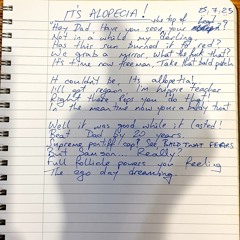 IT'S ALOPECIA! 15.7.25
the top of head
"Hey Dad, Have you seen your ?
Not in a while my darling
Has the sun burned it to red?
We grab a mirror, What the is that?
It's time now freeman, Take that bald patch

It couldn't be, Its allopetia!
I'll got regain, I'm teacher
Right there lets you do that!
In the meantime now your a baldy that

Well it was good while it lasted!
Beat Dad by 20 years.
Supreme pontiff cap! See BALD THAT FEARS
But Samson... Really?
Full follicle powers your feeling
The ago day dreaming.